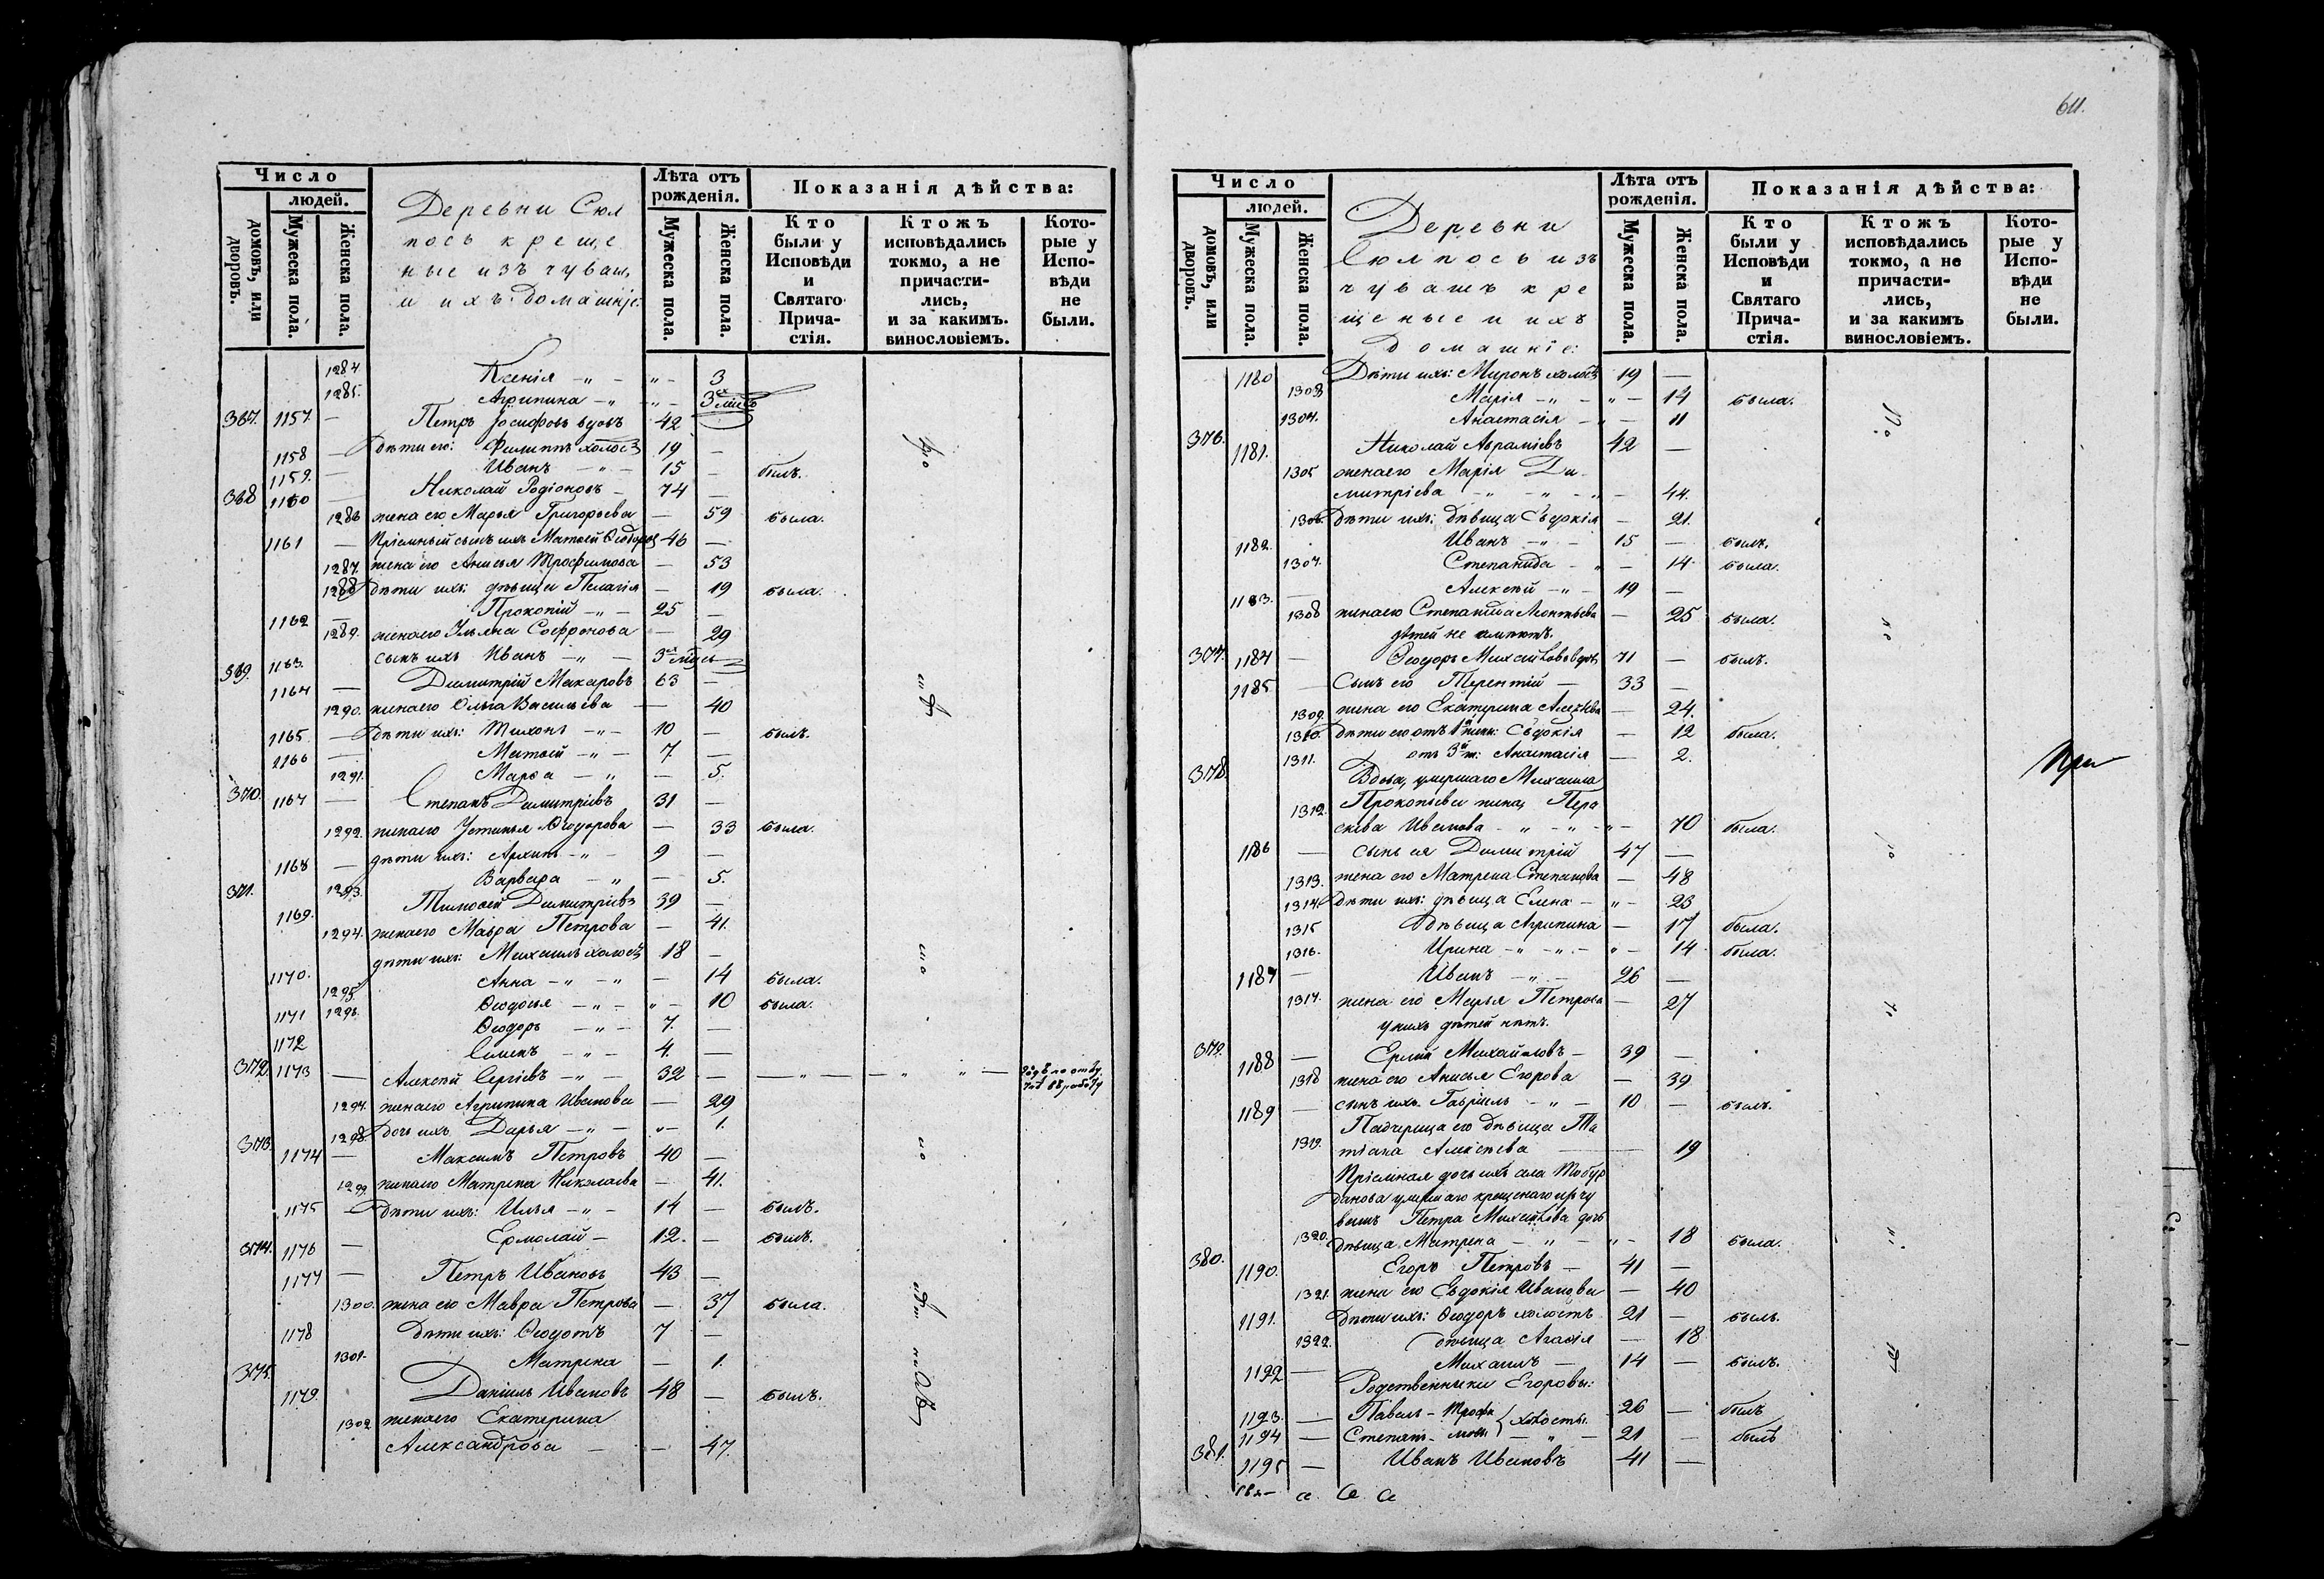 Число
людей.
домовъ, или дворовъ.
Мужеска пола.
Женска пола.
Деревни Сюл
пось креще
ные изъ чуваш,
и ихъ домашніе:
Лѣта отъ рожденія.
Мужеска пола.
Женска пола.
Показанія дѣйства:
Кто были у Исповѣди и Святаго Прича-стія.
Ктожъ исповѣдались токмо, а не причасти-лись, и за какимъ. винословіемъ.
Кото-рые у Испо-вѣди не были.
1284 Ксенія — „ — „ — 3
1285. Агрипина — „ — „ —
367. 1157. — Петръ Іосифовъ вдовъ 42
1158 — Дѣти его: Филиппъ холостъ 19 —
1159. — Иванъ — „ — 15 — былъ.
368 1160 — Николай Родіоновъ — 74 —
1286 жена его Марья Григорьева — 59 была.
1161 — Пріемный сынъ ихъ Матѳей Ѳеодоровъ 46 —
1287. жена его Анисья Трофимова — 53
1288 Дѣти ихъ: дѣвица Пелагія — 19 была.
1162 — Прокопій — „ — 25 —
1289. жена его Ульяна Софронова — 29
1163. сынъ ихъ Иванъ — „ —
369. 1164 — Димитрій Макаровъ 63 —
1290. жена его Ольга Васильева — 40
1165. — Дѣти ихъ: Тихонъ — „ — 10 — былъ.
1166 — Матѳей — „ — 7 —
1291. Марѳа — „ — 5.
370. 1167 — Степанъ Димитріевъ 31 —
1292. жена его Устинья Ѳеодорова — 33 была.
1168 — дѣти ихъ: Архипъ — „ — 9 —
1293. Варвара — „ — 5.
371. 1169. Тимоѳей Димитріевъ 39 —
1294. жена его Мавра Петрова — 41.
1170. дѣти ихъ: Михаилъ холостъ 18 —
1295 Анна — „ — „ — 14 была.
1296. Ѳеодосья — „ — „ — 10 была.
1171 Ѳеодоръ — „ — 7. —
1172 Симонъ — „ — 4. —
372. 1173 — Алексѣй Сергіевъ — „ — 32 — — „ — — „ „ —
1297. жена его Агрипина Иванова — 29
1298. дочь ихъ Дарья — „ — „ — 1.
373. 1174 — Максимъ Петровъ 40 —
1299. жена его Матрена Николаева — 41.
1175 — Дѣти ихъ: Илья — „ — 14 — былъ.
1176 — Ермолай — 12. — былъ.
374. 1177 — Петръ Ивановъ 43 —
1300. жена его Мавра Петрова — 37 была.
1178 Дѣти ихъ: Ѳеодотъ 7 —
1301. Матрена — 1.
375. 1179. Даніилъ Ивановъ 48 — былъ.
1302 жена его Екатерина
Александрова — — 47.
611.
Число
людей.
домовъ, или дворовъ.
Мужеска пола.
Женска пола.
Деревни
Сюлпось изъ
чувашъ кре
щеные и ихъ
домашніе:
Лѣта отъ рожденія.
Мужеска пола.
Женска пола.
Показанія дѣйства:
Кто были у Исповѣди и Святаго Прича-стія.
Ктожъ исповѣдались токмо, а не причасти-лись, и за какимъ винословіемъ.
Кото-рые у Испо-вѣди не были.
1180 Дѣти ихъ: Миронъ холостъ 19 —
1303 Марія — „ — „ — 14 была.
1304. Анастасія — „ — 11
376. 1181. Николай АврамІевъ 42 —
1305 жена его Марія Ди-
митріева — „ — „ — „ — 44.
1306. Дѣти ихъ: дѣвица Евдокія — 21.
1182. Иванъ — „ — 15 — былъ.
1307. Степанида — „ — 14 была.
1183. — Алексѣй — „ — 19 —
1308 жена его Степанида Леонтьева — 25 была.
дѣтей не имѣютъ.
377. 1184 — Ѳеодоръ Михайловъ вдовъ 71 — былъ.
1185 Сынъ его Терентій — 33 —
1309. жена его Екатерина Алексѣева — 24.
1310. Дѣти его отъ 1й жены: Евдокія — 12 была.
1311. отъ 3й ж: Анастасія — 2.
378. Вдова, умершаго Михаила
1312. Прокопьева жена, Пера
скева Иванова — „ — „ — „ — 70 была.
1186 — сынъ ея Димитрій 47 —
1313. жена его Матрена Степанова — 48
1314. Дѣти ихъ: дѣвица Елена — „ — 23
1315 Дѣвица Агрипина — 17 была.
1316. Ирина — „ — „ — „ — 14 была.
1187 — Иванъ — „ — 26 —
1317. жена его Марья Петрова — 27
у нихъ дѣтей нѣтъ.
379. 1188 — Ермій Михайловъ — 39 —
1318 жена его Анисья Егорова — 39
1189 — сынъ ихъ Гавріилъ — „ — 10 — былъ.
Падчерица его дѣвица Та
1319. тіана Алексѣева — 19
Пріемная дочь ихъ
умершаго крещенаго изъ чу
вашъ Петра Михайлова дочь
1320. дѣвица Матрена — „ — „ — 18 была.
380. 1190. Егоръ Петровъ — 41 —
1321. жена его Евдокія Иванова — 40
1191. Дѣти ихъ: Ѳеодоръ холостъ 21 — былъ.
1322. дѣвица Агаѳія — 18
1192 — Михаилъ — 14 — былъ.
Родственники Егоровы:
1193. — Павелъ — Трофи 26 — былъ
1194 — Степанъ — мовы холосты. — „ — 21 — былъ
381. 1195 — Иванъ Ивановъ 41 —